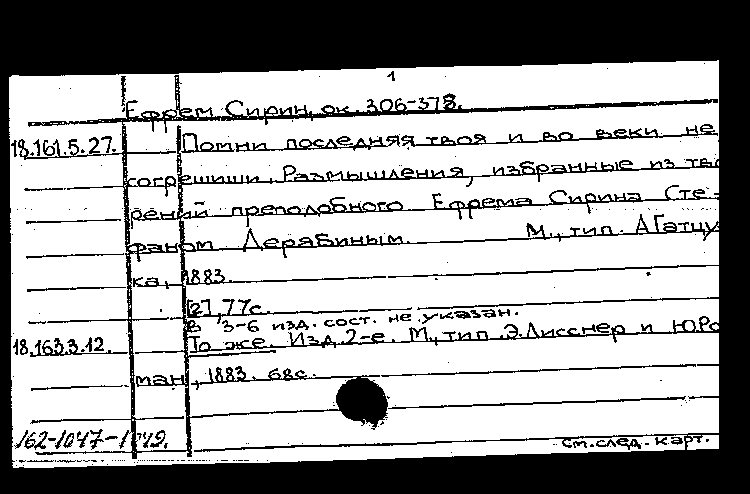 1
Ефрем Сирин, ок. 306-378.
18.161.5.27. Помни последняя твоя и во веки не
согрешиши. Размышления, избранные из тво
рений преподобного Ефрема Сирина Сте-
фаном Дерябиным. М., тип. А Гатцу
ка, 1883.
[2], 77с.
В 3-6 изд. сост. не указан.
18.163.3.12. То же. Изд. 2-е. М., тип. Э. Лисснер и Ю Ро
ман, 1883. 68с.
162-1047-1949.
см. след. карт.